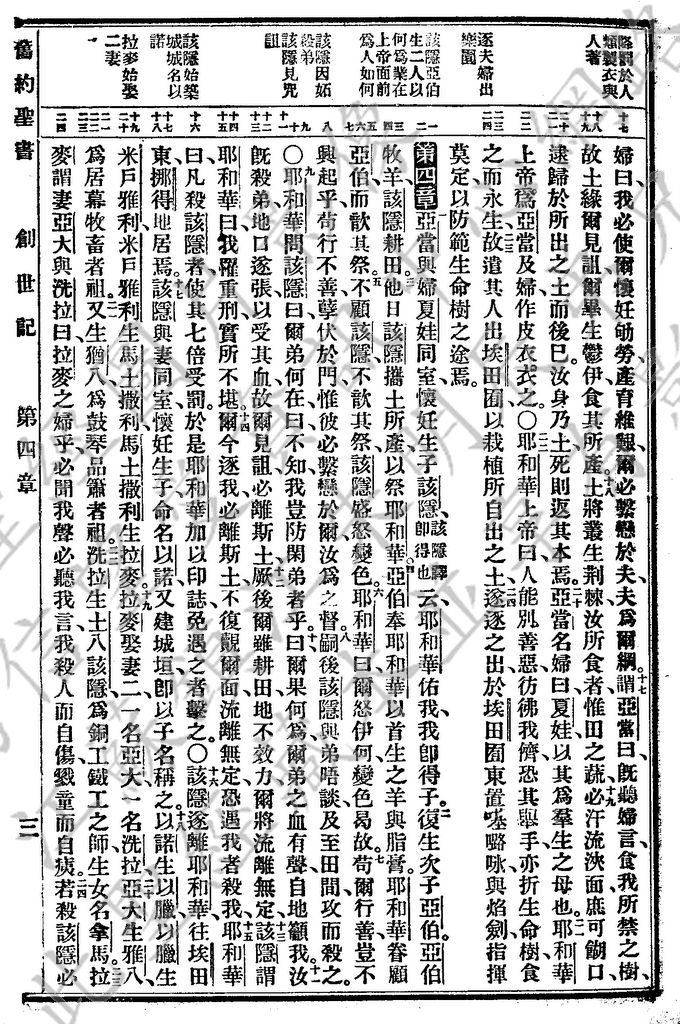 降罰於人
類製衣與
人著
逐夫婦出
樂園
該隱亞伯
生二人以
何為業在
上帝面前
為人如何
該隱因妬
殺弟
該隱見咒
詛
該隱始築
城城名以
諾
拉麥始娶
二妻
婦曰我必使爾懷妊劬勞產育維艱爾必繫戀於夫夫爲爾綱十七謂亞當曰旣聽婦言食我所禁之樹
故土緣爾見詛爾畢生鬱伊食其所產十八土將叢生荆棘汝所食者惟田之蔬十九必汗流浹面庶可餬口
逮歸於所出之土而後已汝身乃土死則返其本焉二十亞當名婦曰夏娃以其爲羣生之母也二一耶和華
上帝爲亞當及婦作皮衣衣之○二二耶和華上帝曰人能别善惡彷彿我儕恐其舉手亦折生命樹食
之而永生二三故遣其人出埃田囿以栽植所自出之土二四遂逐之出於埃田囿東置𠼻㗉咏與焰劍指揮
莫定以防範生命樹之途焉
第四章亞當與婦夏娃同室懷妊生子該隱該隱譯卽得也云耶和華佑我我卽得子二復生次子亞伯亞伯
牧羊該隱耕田三他日該隱攜土所產以祭耶和華四亞伯奉耶和華以首生之羊與脂膏耶和華眷顧
亞伯而歆其祭五不顧該隱不歆其祭該隱盛怒變色六耶和華曰爾怒伊何變色曷故七苟爾行善豈不
興起乎苟行不善孽伏於門惟彼必繫戀於爾汝爲之督八嗣後該隱與弟晤談及至田間攻而殺之
○九耶和華問該隱曰爾弟何在曰不知我豈防閑弟者乎十曰爾果何爲爾弟之血有聲自地籲我十一汝
旣殺弟地口遂張以受其血故爾見詛必離斯土十二厥後爾雖耕田地不效力爾將流離無定十三該隱謂
耶和華曰我罹重刑實所不堪十四爾今逐我必離斯土不復覿爾面流離無定恐遇我者殺我十五耶和華
曰凡殺該隱者使其七倍受罰於是耶和華加以印誌免遇之者擊之○十六該隱遂離耶和華往埃田
東挪得地居焉十七該隱與妻同室懷妊生子命名以諾又建城垣卽以子名稱之十八以諾生以臘以臘生
米戶雅利米戶雅利生馬土撒利馬土撒利生拉麥十九拉麥娶妻二一名亞大一名洗拉二十亞大生雅八
爲居幕牧畜者祖二一又生猶八爲鼓琴品簫者祖二二洗拉生土八該隱爲銅工鐵工之師生女名拿馬二三拉
麥謂妻亞大與洗拉曰拉麥之婦乎必聞我聲必聽我言我殺人而自傷戮童而自殘二四若殺該隱必
舊約聖書 創世記 第四章 三